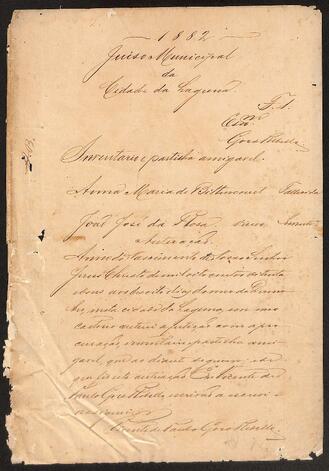 1882
Juiso Municipal
da
Cidade da Laguna
F. 1.
Escm
Goes Rebello
Inventario e partilha amigavel.
Anna Maria de Bittencourt Fallecida
João José da Rosa
Autuação.
Anno do Nascimento de Nosso Senhor
Jesus Christo de mil oito centos oitenta
e dous aos dias do mes de
nesta cidade da Laguna, em meu
cartorio autuei a petição com a pro
curação, inventario e partilha ami
gavel, que ao diante seguem; do
que fiz esta autuação. Eu Vicente de
Paulo Goes Rebello, escrivão a escrevi
e assignei.
Vicente de Paulo Goes Rebello.